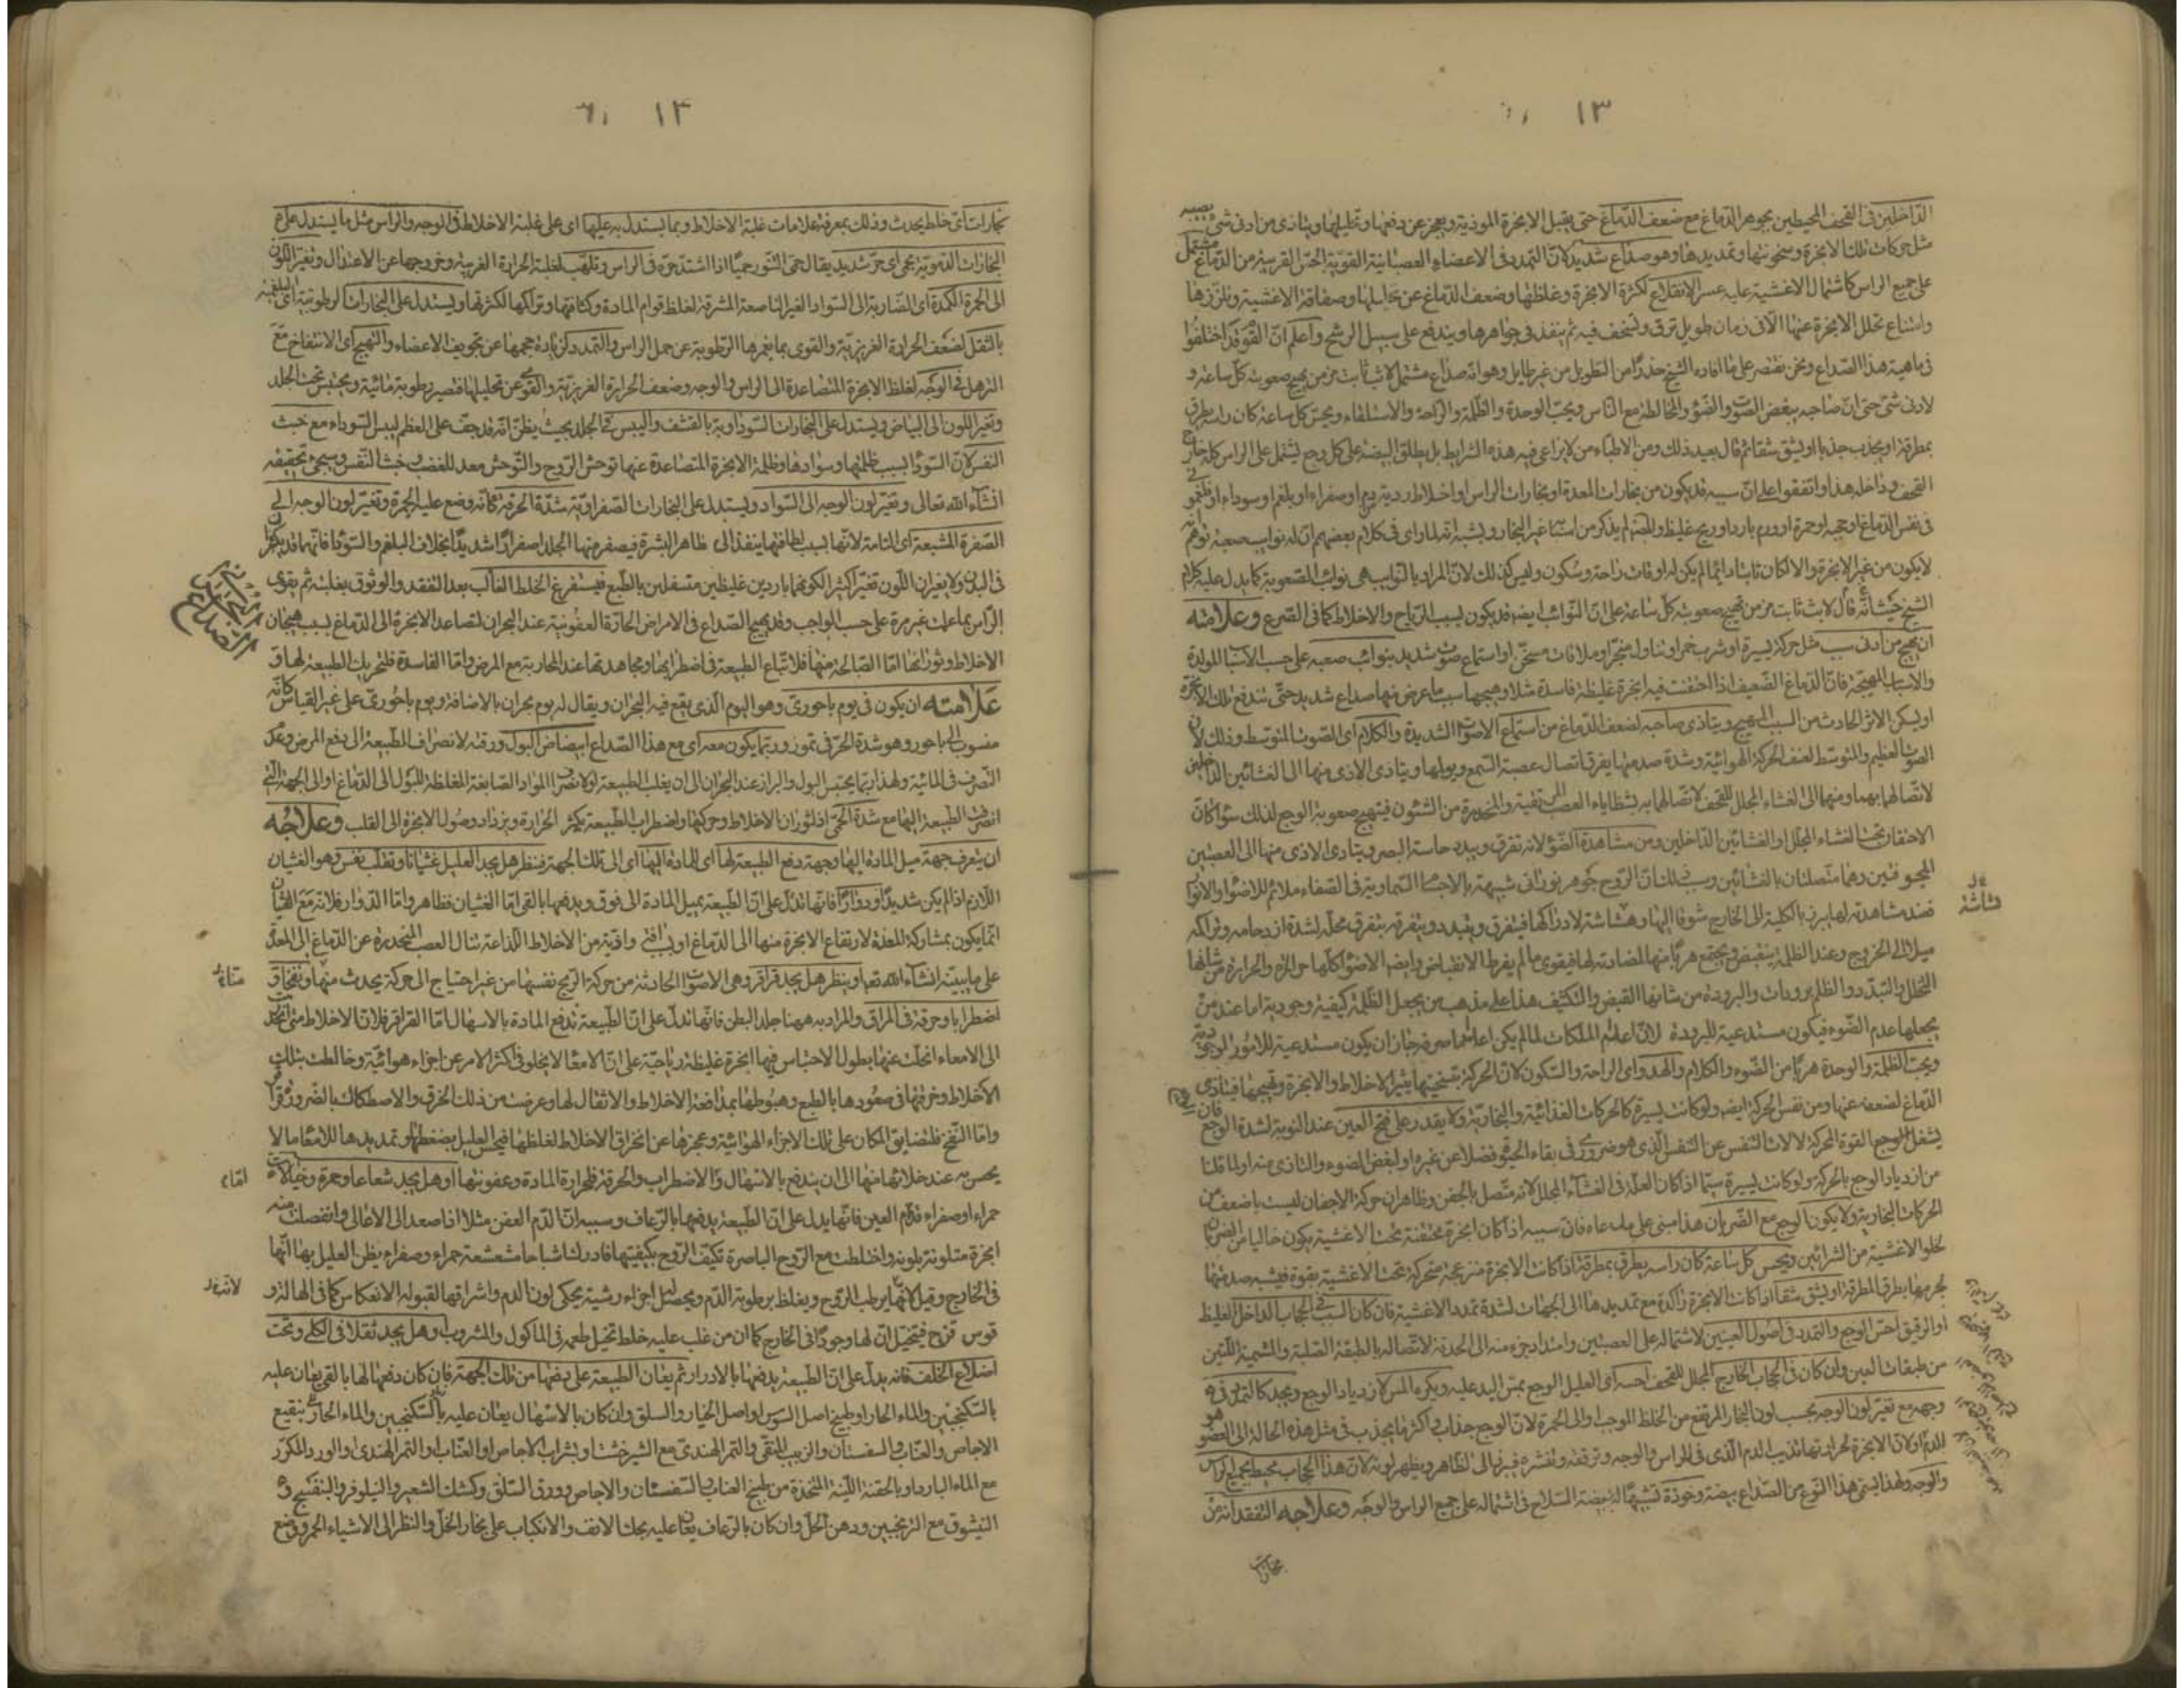 ١٣
الداخلين فى القحف المحيطين بجوهر الدماغ مع ضعف الدماغ حتى يقبل الابخرة الموذية ويعجز عن دفعها وتحليلها ويتاذى من ادنى شئ يصيبه
مثل حركات تلك الابخرة وسخونتها وتمديدها وهو صداع شديد لان التمدد فى الاعضاء العصبانية القوية الحس القريبة من الدماغ مشتمل
على جميع الراس كاشتمال الاغشية عليه عسر الانقلاع لكثرة الابخرة وغلظها وضعف الدماغ عن تحليلها وصفاقة الاغشية وتلززها
وامتناع تحلل الابخرة عنها الا فى زمان طويل ترق وتسخف فيه ثم ينفذ فى جواهرها ويندفع على سبيل الرشح واعلم ان القوم قد اختلفوا
فى ماهية هذا الصداع ونحن نقتصر على ما افاده الشيخ حذرا من التطويل من غير طايل وهو انه صداع مشتمل لابث ثابت مزمن يهيج صعوبته كل ساعة و
لادنى شئ حتى ان صاحبه يبغض الصوت والضوء والمخالطة مع الناس ويحب الوحدة والظلمة والراحة والاستلقاء ويحس كل ساعة كان راسه يطرق
بمطرقة او يجذب جذبا او يشق شقا ثم قال بعيد ذلك ومن الاطباء من لا يراعى فيه هذه الشرايط بل يطلق البيضة على كل وجع يشتمل على الراس كله خارج
القحف وداخله هذا واتفقوا على ان سببه قد يكون من بخارات المعدة او بخارات الراس او اخلاط ردية دم او صفراء او بلغم او سوداء او فلغمونى
فى نفس الدماغ او حجبه او حمرة او ورم بارد او ريح غليظ والمص لم يذكر من اسبابه غير البخار ويشبه انه لما راى فى كلام بعضهم ان له نوايب صعبة توهم انه
لا يكون من غير الابخرة والا لكان ثابتا دائما لم يكن له اوقات راحة وسكون وليس كذلك لان المراد بالنوايب هى نوائب الصعوبة كما يدل عليه كلام
الشيخ حيث انه قال لابث ثابت مزمن تهيج صعوبته كل ساعة على ان النوائب ايضه قد يكون لسبب الرياح والاخلاط كما فى الصرع وعلامته
ان يهيج من ادنى سبب مثل حركة يسيرة او شرب خمر او تناول مبخر او ملاقات مسخن او استماع صوت شديد بنوائب صعبة على حسب الاسباب المولدة
والاسباب المهيجة فان الدماغ الضعيف اذا احتقنت فيه ابخرة غليظة فاسدة مثلا وهيجها سبب ما عرض منها صداع شديد حتى تندفع تلك الابخرة
او يسكن الاثر الحادث من السبب المهيج ويتاذى صاحبه لضعف الدماغ من استماع الاصوات الشديدة والكلام اى الصوت المتوسط وذلك لان
الصوت العظيم والمتوسط لعنف الحركة الهوائية وشدة صدمتها يفرق اتصال عصبة السمع ويولمها ويتادى الاذى منها الى الغشائين الداخلين
لاتصالهما بهما ومنهما الى الغشاء المجلل للقحف لاتصالهما به بشظاياه العصب المرتقية والمنحدرة من الشئون فيهيج صعوبة الوجع لذلك سواء كان
الاحتقان تحت الغشاء المجلل او الغشائين الداخلين ومن مشاهدة الضوء لانه تفرق ويبدد حاسة البصر ويتادى الاذى منها الى العصبتين
المجوفتين وهما متصلتان بالغشائين وسبب ذلك ان الروح جوهر نورانى شبيهة بالاجسام السماوية فى الصفاء ملائم للاضواء والانوار
فعند مشاهدته لها يبرز بالكلية الى الخارج شوقا اليها وهشاشة لادراكها فيتفرق ويتبدد ويتفرقه يتفرق محله لشدة ازدحامه وتراكمه
ميلا الى الخروج وعند الظلمة ينقبض ويجتمع هربا منها لمضادته لها فيقوى ما لم يفرط الانقباض وايضه الاضواء كلها حارة والحرارة من شانها
التحلل والتبدد والظلم برودات والبرودة من شانها القبض والتكثيف هذا على مذهب من يجعل الظلمة كيفية وجودية اما عند من
يجعلها عدم الضوء فيكون مستدعية للبرودة لان اعدام الملكات لما لم يكن اعداما صرفة جاز ان يكون مستدعية للامور الوجودية
ويحب الظلمة والوحدة هربا من الضوء والكلام والهدو اى الراحة والسكون لان الحركة بتسخينها يثير الاخلاط والابخرة وتهيجها فيتاذى
الدماغ لضعفه عنها ومن نفس الحركة ايضه ولو كانت يسيرة كالحركات الغذائية والبخارية ولا يقدر على فتح العين عند النوبة لشدة الوجع فان
يشغل الوجع القوة المحركة لالات النفس عن النفس الذى هو ضرورى فى بقاء الحيوة فضلا عن غيره او لبغض الضوء والتاذى منه او لما قلنا
من ازدياد الوجع بالحركة ولو كانت يسيرة سيما اذا كان العلة فى الغشاء المجلل لانه متصل بالجفن وظاهر ان حركة الاجفان ليست باضعف من
الحركات البخارية ولا يكون الوجع مع الضربان هذا مبنى على مدعاه فان سببه اذا كان ابخرة محتقنة تحت الاغشية يكون خاليا من الضربان
لخلو الاغشية من الشرائين ويحس كل ساعة كان راسه يطرق بمطرقة اذا كانت الابخرة منزعجة متحركة تحت الاغشية بقوة فيشبه صدمتها
لجرمها بطرق المطرقة او يشق شقا اذا كانت الابخرة راكدة مع تمديدها الى الجهات لشدة تمدد الاغشية فان كان السبب فى الحجاب الداخل الغليظ
او الرقيق احس الوجع والتمدد فى اصول العينين لاشتماله على العصبتين وامتداد جزء منه الى الحدقة لاتصاله بالطبقة الصلبة والشيمية اللتين
من طبقات العين وان كان فى الحجاب الخارج المجلل للقحف احسه اى العليل الوجع بمس اليد عليه ويكره المس لازدياد الوجع ويجد كالتمدد فى
وجهه مع تغير لون الوجه بحسب لون البخار المرتفع من الخلط الموجب او الى الحمرة لان الوجع جذاب واكثر ما يجذب فى مثل هذه الحالة الى العضو هو
الدم او لان الابخرة لحرارتها تذيب الدم الذى فى الراس والوجه وترققه وتنشره فيبرز الى الظاهر ويظهر لونه لان هذا الحجاب محيط بجميع الراس
والوجه ولهذا يسمى هذا النوع من الصداع بيضة وخوذة تشبيها له ببيضة السلاح فى اشتماله على جميع الراس والوجه وعلاجه التفقد انه من
بخارات
١٤
بخارات اى خلط يحدث وذلك بمعرفة علامات غلبة الاخلاط وبما يستدل به عليها اى على غلبة الاخلاط فى الوجه والراس مثل ما يستدل على
البخارات الدموية بحمى اى حر شديد يقال حمى التنور حميا اذا اشتد حره فى الراس وتلهب لغلبة الحرارة الغريبة وخروجها عن الاعتدال وتغير اللون
الى الحمرة الكمدة اى الضاربة الى السواد الغير الناصعة المشرقة لغلظ قوام المادة وكثافتها وتراكمها لكثرتها ويستدل على البخارات الرطوبية اى البلغمية
بالثقل لضعف الحرارة الغريزية والقوى بما يغمرها الرطوبة عن حمل الراس والتمدد لزيادة حجمها عن تجويف الاعضاء والتهيج اى الانتفاخ مع
الترهل فى الوجه لغلظ الابخرة المتصاعدة الى الراس والوجه وضعف الحرارة الغريزية والقوى عن تحليلها فتصير رطوبة مائية ويحتبس تحت الجلد
وتغير اللون الى البياض ويستدل على البخارات السوداوية بالقشف واليبس فى الجلد بحيث يظن انه قد جف على العظم ليبس السوداء مع خبث
النفس لان السوداء بسبب ظلمتها وسوادها وظلمة الابخرة المتصاعدة عنها توحش الروح والتوحش معد للغضب وخبث النفس وسيجئ تحقيقه
انشاء الله تعالى وتغير لون الوجه الى السواد ويستدل على البخارات الصفراوية شدة الحرقة كانه وضع عليه الجمرة وتغير لون الوجه الى
الصفرة المشبعة اى التامة لانها بسبب لطافتها ينفذ الى ظاهر البشرة فيصفر منها الجلد اصفرارا شديدا بخلاف البلغم والسوداء فانهما قد يكثران
فى البدن ولا يغيران اللون تغيرا كثيرا لكونهما باردين غليظين متسفلين بالطبع فيستفرغ الخلط الغالب بعد التفقد والوثوق بغلبته ثم يقوى
الراس بما علمت غير مرة على حسب الواجب وقد يهيج الصداع فى الامراض الحادة العفونية عند البحران لتصاعد الابخرة الى الدماغ بسبب هيجان
الاخلاط وثورانها اما الصالحة منها فلاتباع الطبيعة فى اضطرابها ومجاهدتها عند المحاربة مع المرض واما الفاسدة فلتحريك الطبيعة لها و
علامته ان يكون فى يوم باحورى وهو اليوم الذى يقع فيه البحران ويقال له يوم بحران بالاضافة ويوم باحورى على غير القياس كانه
منسوب الى باحور وهو شدة الحر فى تموز وربما يكون معه اى مع هذا الصداع ابيضاض البول ورقته لانصراف الطبيعة الى دفع المرض وعدم
التصرف فى المائية ولهذا ربما يحتبس البول والبراز عند البحران الى ان يغلب الطبيعة او لانصراف المواد الصابغة المغلظة للبول الى الدماغ او الى الجهة التى
انصرفت الطبيعة اليها مع شدة الحمى اذ لثوران الاخلاط وحركتها واضطراب الطبيعة يكثر الحرارة ويزداد وصول الابخرة الى القلب وعلاجه
ان يتعرف جهة ميل المادة اليها وجهة دفع الطبيعة لها اى للمادة اليها اى الى تلك الجهة فينظر هل يجد العليل غثيانا وتقلب نفس وهو الغثيان
اللازم اذا لم يكن شديدا او دوارا فانها تدل على ان الطبيعة يميل المادة الى فوق ويدفعها بالقى اما الغثيان فظاهر واما الدوار فلانه مع الغثيان
انما يكون بمشاركة المعدة لارتفاع الابخرة منها الى الدماغ
على ما يبينه انشاء الله تعه او ينظر هل يجد قراقر وهى الاصوات الحادثة من حركة الريح نفسها من غير احتياج الى حركة يحدث منها ونفخا و
اضطرابا وحرقة فى المراق والمراد به ههنا جلد البطن فانها تدل على ان الطبيعة تدفع المادة بالاسهال اما القراقر فلان الاخلاط متى انجلبت
الى الامعاء انحلت عنها بطول الاحتباس فيها ابخرة غليظة رياحية على ان الامعاء لا يخلو فى اكثر الامر عن اجزاء هوائية وخالطت بتلك
الاخلاط وخرقتها فى صعودها بالطبع وهبوطها بمدافعة الاخلاط والاثقال لها وعرضت من ذلك الخرق والاصطكاك بالضرورة قراقر
واما النفخ فلتضايق المكان على تلك الاجزاء الهوائية وعجزها عن انخراق الاخلاط لغلظها فيحس العليل بضغطها وتمديدها للامعاء ما لا
يحس به عند خلائها منها الى ان يندفع بالاسهال والاضطراب والحرقة فلحرارة المادة وعفونتها او هل يجد شعاعا وحمرة وخيالات
حمراء او صفراء قدام العين فانها يدل على ان الطبيعة يدفعها بالرعاف وسببه ان الدم العفن مثلا اذا صعد الى الاعالى وانفصلت منه
ابخرة متلونة بلونه واختلطت مع الروح الباصرة تكيف الروح بكيفيتها فادركت اشباحا مشعشعة حمراء وصفراء يظن العليل بها انها
فى الخارج وقيل لانها يرطب الروح ويغلظ برطوبة الدم ويحصل اجزاء رشية يحكى لون الدم واشراقها لقبوله الانعكاس كما فى الهالة و
قوس قزح فيتخيل ان لها وجودا فى الخارج كما ان من غلب عليه خلط تخيل طعمه فى الماكول والمشروب وهل يجد ثقلا فى الكلى وتحت
اضلاع الخلف فانه يدل على ان الطبيعة يدفعها بالادرار ثم يعان الطبيعة على دفعها من تلك الجهة فان كان دفعها لها بالقى يعان عليه
بالسكنجبين والماء الحار او طبيخ اصل السوس او اصل الخيار والسلق وان كان بالاسهال يعان عليه بالسكنجبين والماء الحار بنقيع
الاجاص والعناب والسفستان والزبيب المنقى والتمر الهندى مع الشيرخشت او بشراب الاجاص او العناب او التمر الهندى او الورد المكرر
مع الماء البارد او بالحقنة اللينة المتخذة من طبيخ العناب والسفستان والاجاص وورق السلق وكشك الشعير والنيلوفر والبنفسج و
النيشوق مع الترنجبين ودهن الحل وان كان بالرعاف يعان عليه بحك الانف والانكباب على بخار الخل والنظر الى الاشياء الحمر ووضع